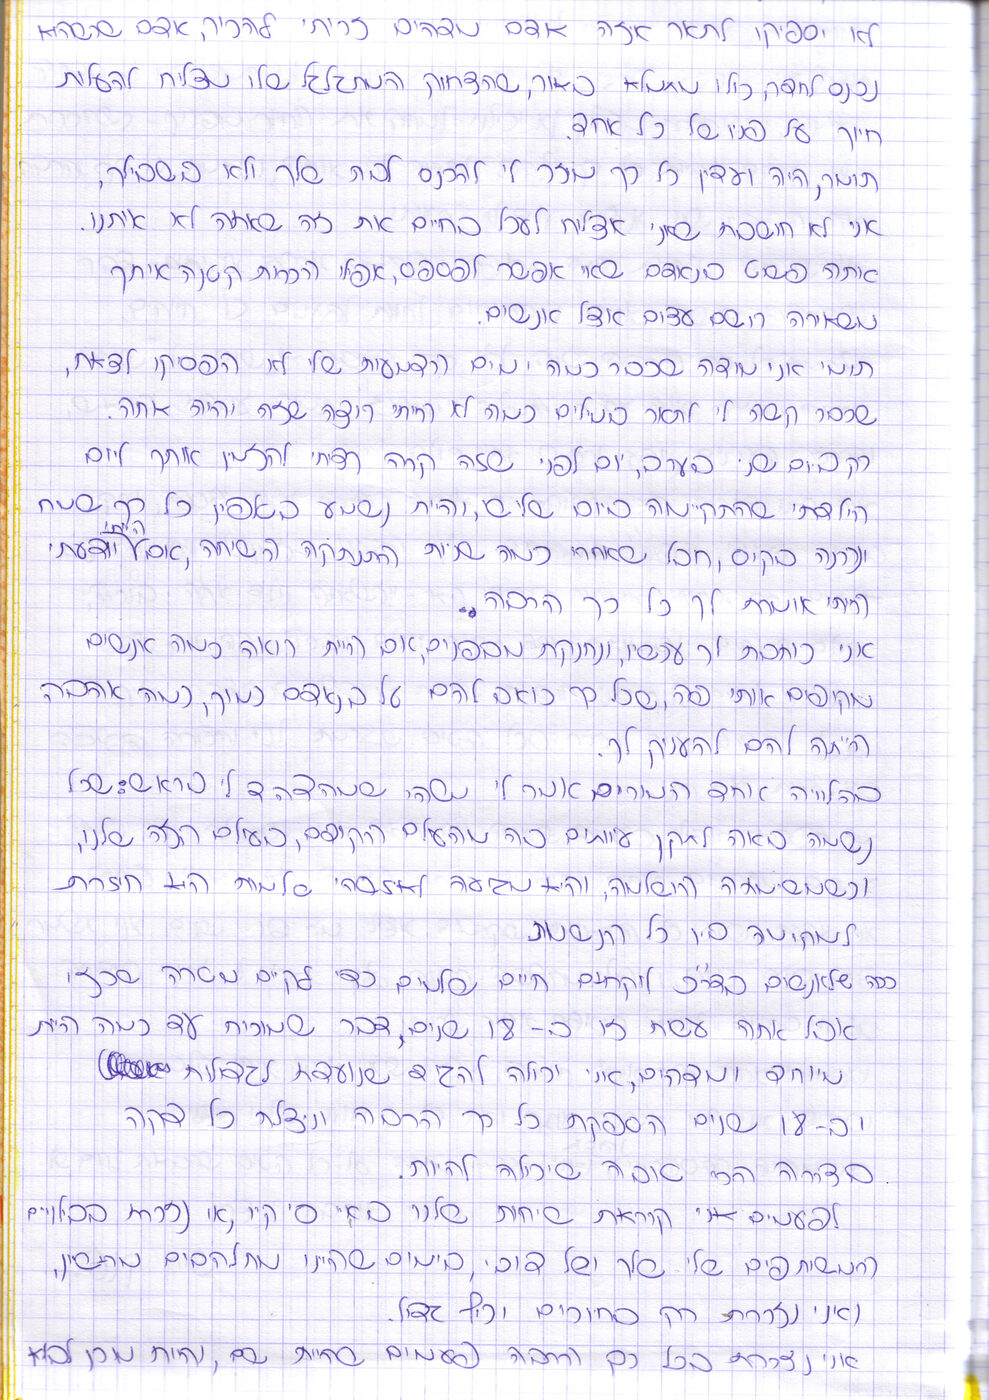 לא יספיקו לתאר איזה אדם מדהים זכיתי להכיר, אדם שכשהוא
נכנס לחדר, כולו מתמלא באור, שהצחוק המתגלגל שלו מצליח להעלות
חיוך על פניו של כל אחד.
תומר, היה ועדין כל כך מוזר לי להכנס לבית שלך ולא בשבילך,
אני לא חושבת שאני אצליח לעכל בחיים את זה שאתה לא איתנו.
איתה פשוט בנאדם שאי אפשר לפספס, אפילו הכרות קטנה איתך
משאירה רושם עצום אצל אנשים.
תומי אני מודה שכבר כמה ימים הדמעות שלי לא הפסיקו לצאת,
שכבר קשה לי לתאר במילים כמה לא הייתי רוצה שזה יהיה אתה.
רק ביום שני בערב, יום לפני שזה קרה רציתי להזמין אותך ליום
הולדתי שהתקיימה ביום שלישי, והיית נשמע באפיון כל כך שמח
ונהנה בקיום, חבל שאחרי כמה שניות התנתקה השיחה, אם הייתי יודעת
הייתי אומרת לך כל כך הרבה..
אני כותבת לך עכשיו, ונחנקת מבפנים, אם היית רואה כמה אנשים
מקיפים אותי פה, שכל כך כואב להם על בנאדם כמוך, כמה אהבה
הייתה להם להעניק לך.
בהלוויה אחד המורים אמר לי משהו שמהדהד לי בראש: שכל
נשמה באה לתקן עיוותים פה מהעולם הקודם, בעולם הזה שלנו,
וכשמשימתה הושלמה, והיא מגיעה לאיזשהי שלמות היא חוזרת
למקומה בין כל הנשמות
ככה שלאנשים בד"כ לוקחים חיים שלמים כדי לקיים מטרה שכזו
אבל אתה עשית זו ב-18 שנים, דבר שמוכיח עד כמה היית
מיוחד ומדהים, אני יכולה להגיד שנועדת לגדולות
וב-18 שנים הספקת כל כך הרבה וניצלת כל דקה
בצורה הכי טובה שיכולה להיות.
לפעמים אני קוראת שיחות שלנו באיי סי קיו, או נזכרת בבילויים
המשותפים שלי שלך ושל דובי, בימים שהיינו מתלהבים מהטיון,
ואני נזכרת רק בחיוכים וכיף גדול.
אני נזכרת בכל כך הרבה פעמים שהיית שם, והיית מוכן לבוא